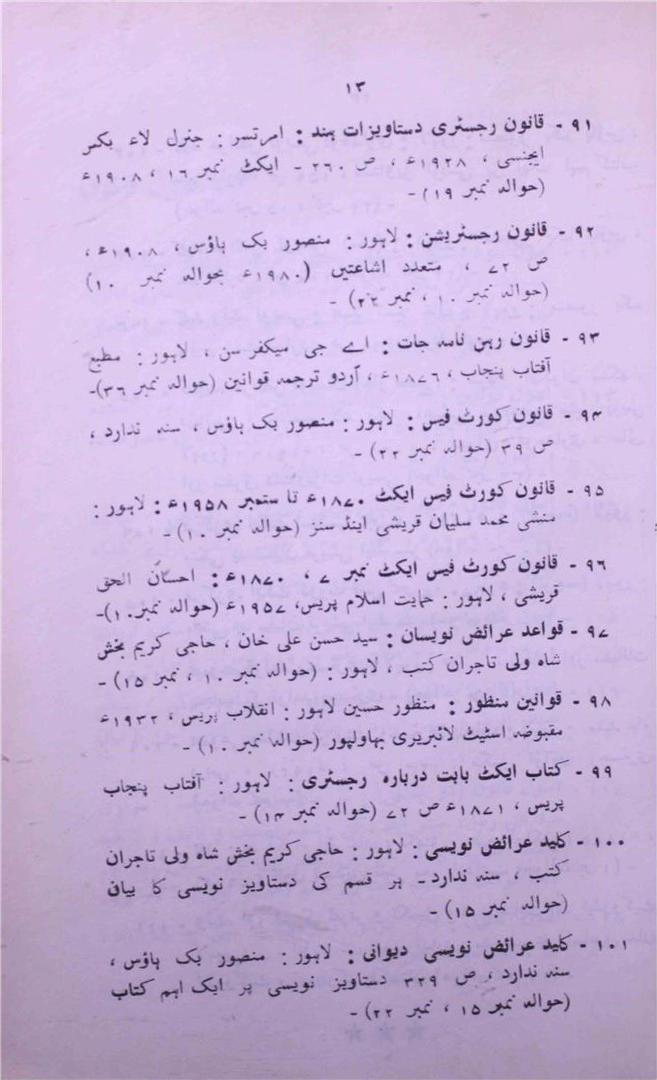 ۱۳
۹۱ - قانون رجسٹری دستاویزات ہند : امرتسر : جنرل لاء بکس
ایجنسی ، ۱۹۲۸ء ، ص ۲۶۰ - ایکٹ نمبر ۱۶ ، ۱۹۰۸ء
(حوالہ نمبر ۱۹) -
۹۲ - قانون رجسٹریشن : لاہور : منصور بک ہاؤس ، ۱۹۰۸ء ،
ص ۷۲ ، متعدد اشاعتیں (۱۹۸۰ء بحوالہ نمبر ۱۰)
(حوالہ نمبر ۱۰ ، نمبر ۲۲) -
۹۳ - قانون رہن نامہ جات : اے جی میکفرسن ، لاہور : مطبع
آفتاب پنجاب ، ۱۸۷۶ء ، اُردو ترجمہ قوانین (حوالہ نمبر ۳۶)-
۹۴ - قانون کورٹ فیس : لاہور : منصور بک ہاؤس ، سنہ ندارد ،
ص ۳۹ (حوالہ نمبر ۲۲) -
۹۵ - قانون کورٹ فیس ایکٹ ۱۸۷۰ء تا ستمبر ۱۹۵۸ء : لاہور :
منشی محمد سلیمان قریشی اینڈ سنز (حوالہ نمبر ۱۰) -
۹۶ - قانون کورٹ فیس ایکٹ نمبر ۷ ، ۱۸۷۰ء : احسان الحق
قریشی ، لاہور : حمایت اسلام پریس، ۱۹۵۷ء (حوالہ نمبر ۱۰)-
۹۷ - قواعد عرائض نویسان : سید حسن علی خان ، حاجی کریم بخش
شاہ ولی تاجران کتب ، لاہور : (حوالہ نمبر ۱۰ ، نمبر ۱۵) -
۹۸ - قوانین منظور : منظور حسین لاہور : انقلاب پریس ، ۱۹۳۲ء
مقبوضہ اسٹیٹ لائبریری بہاولپور (حوالہ نمبر ۱۰) -
۹۹ - کتاب ایکٹ بابت دربارہ رجسٹری : لاہور : آفتاب پنجاب
پریس ، ۱۸۷۱ء ص ۷۲ (حوالہ نمبر ۱۴) -
۱۰۰ - کلید عرائض نویسی : لاہور : حاجی کریم بخش شاہ ولی تاجران
کتب ، سنہ ندارد - ہر قسم کی دستاویز نویسی کا بیان
(حوالہ نمبر ۱۵) -
۱۰۱ - کلید عرائض نویسی دیوانی : لاہور : منصور بک ہاؤس ،
سنہ ندارد ، ص ۳۲۹ دستاویز نویسی پر ایک اہم کتاب
(حوالہ نمبر ۱۵ ، نمبر ۲۲) -